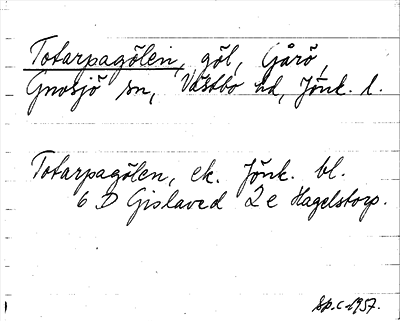 Totarpagölen, göl, Gårö,
Gnosjö sn, Västbo hd, Jönk. l.
Totarpagölen, ek. Jönk. bl.
6 D Gislaved 2 e Hagelstorp.
Sp.c. 1957.